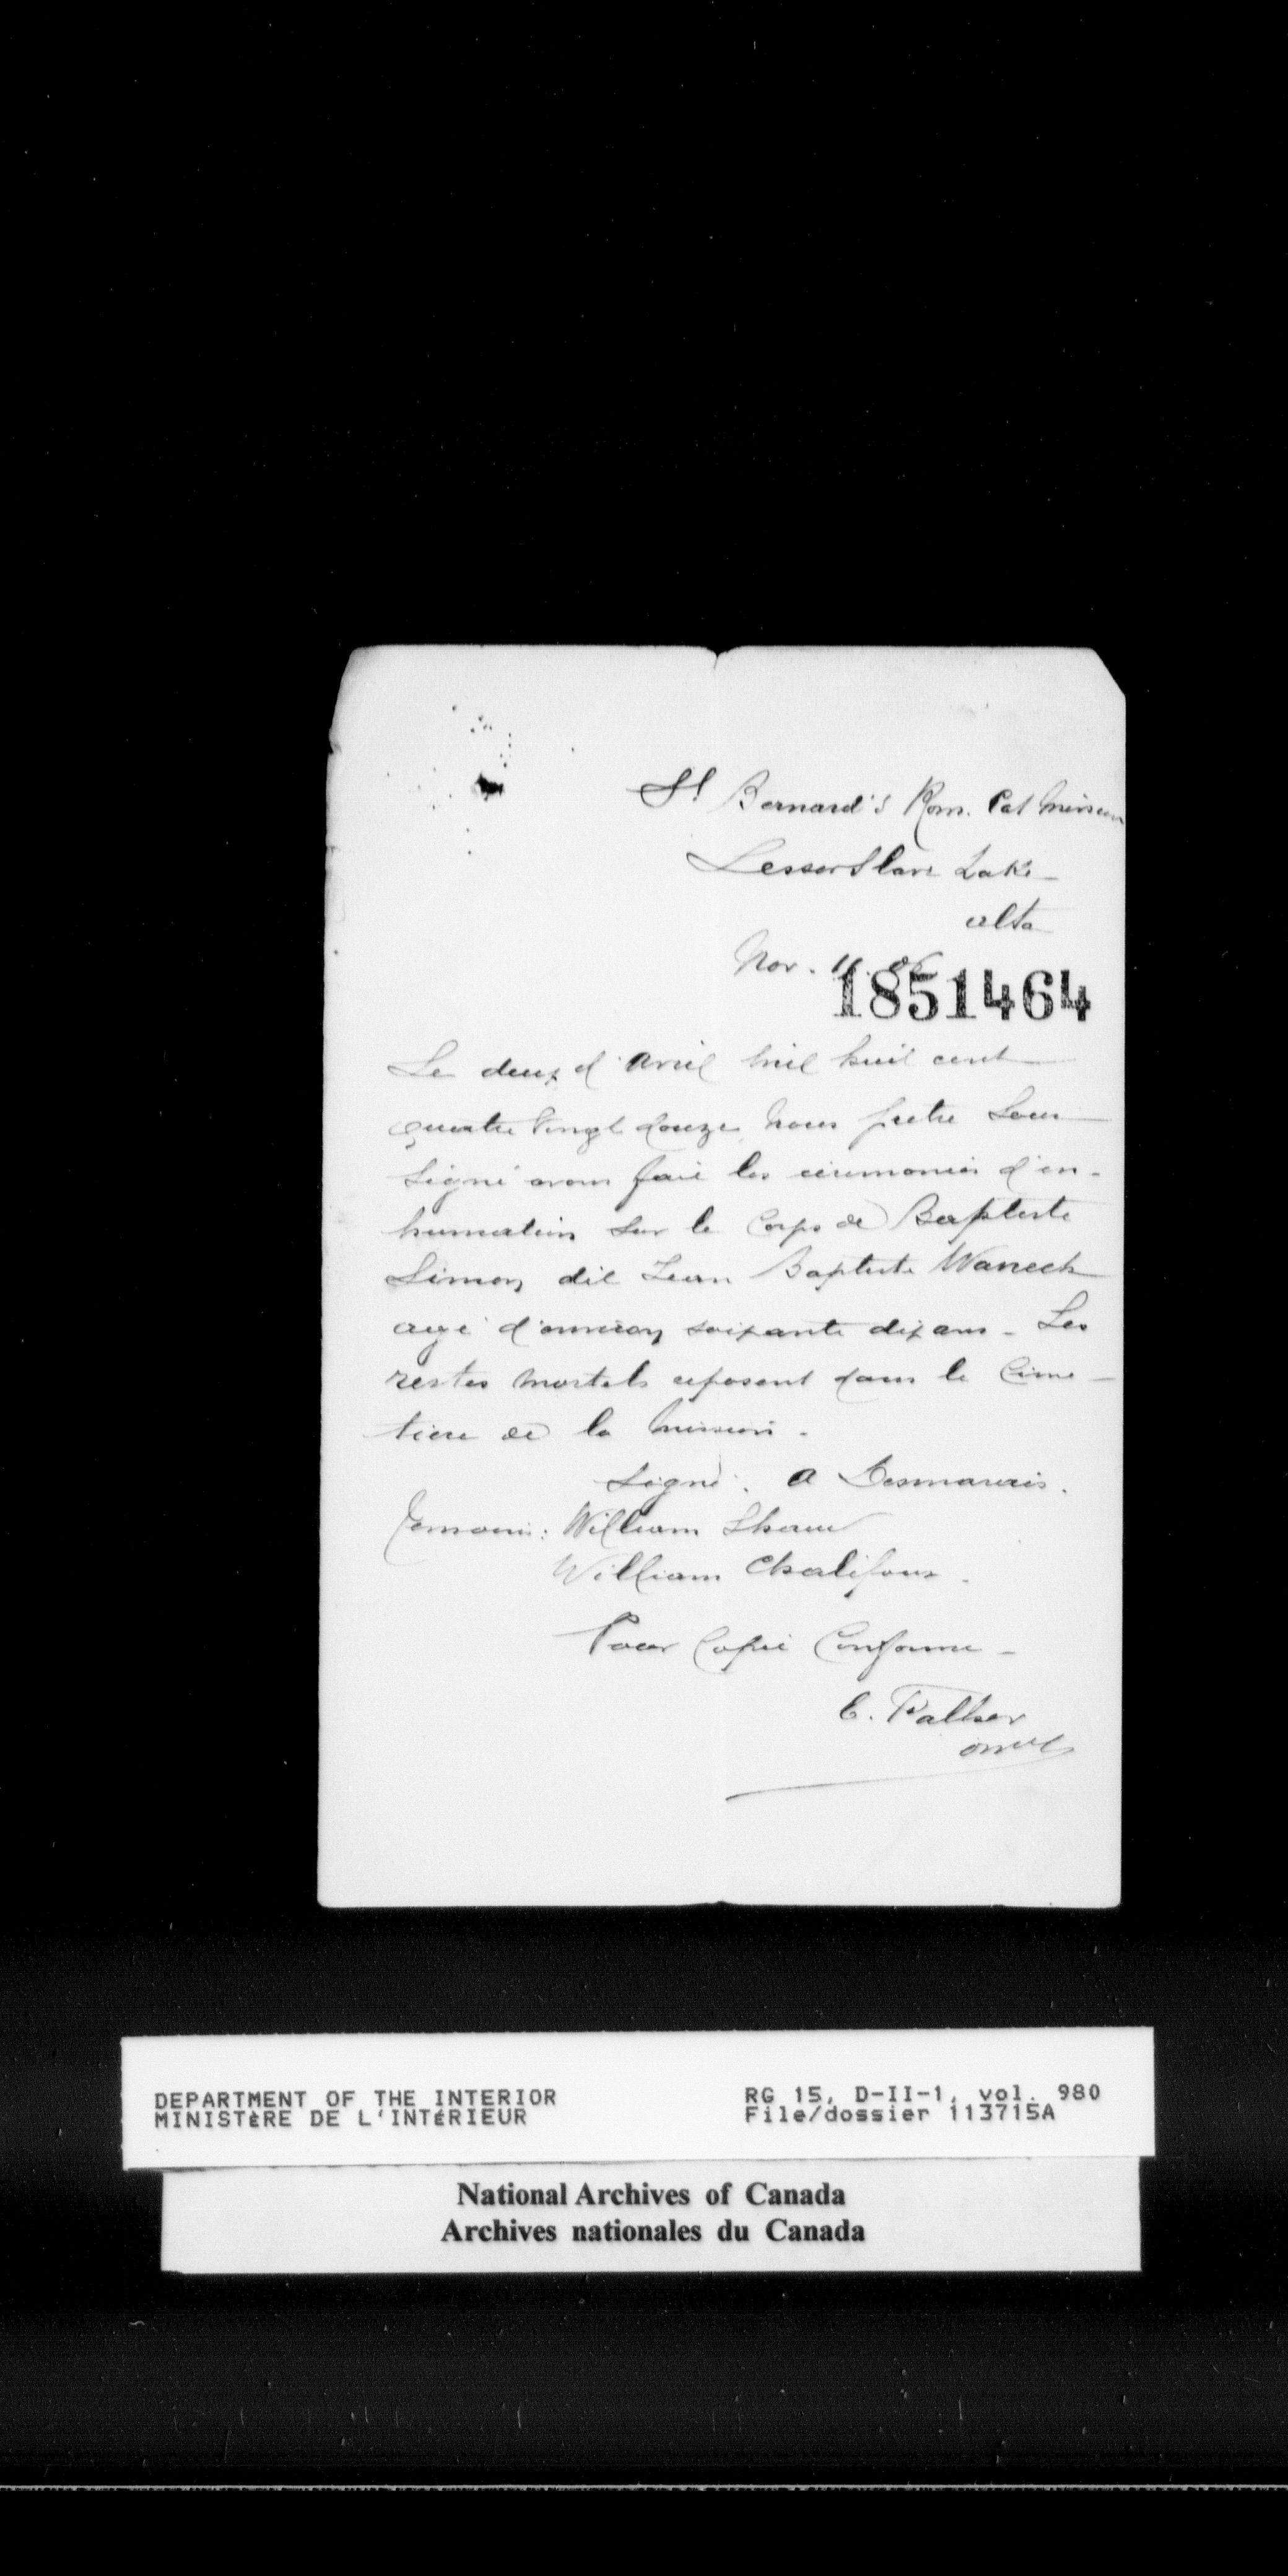 St Bernard's Rom. Cat Mission
Lesser Slave Lake
alta
Nov.
1851464
Le deux d'avril mil huit cent
quatre vingt douze nous prêtre sous
signé avons fait les cérémonies d'in-
humation sur le corps de Baptiste
Simon dit Jean Baptiste Wanech
agé d'environ soixante dix ans - Les
restes mortels reposent dans le Cime-
tière de la mission.
Signé. A Desmarais.
Témoins: William Shaw
William Chalifoux.
Pour Copie Conforme -
C. Falher
omi
DEPARTMENT OF THE INTERIOR
MINISTÈRE DE L'INTÉRIEUR
RG 15, D-II-1, vol. 980
File/dossier 113715A
National Archives of Canada
Archives nationales du Canada